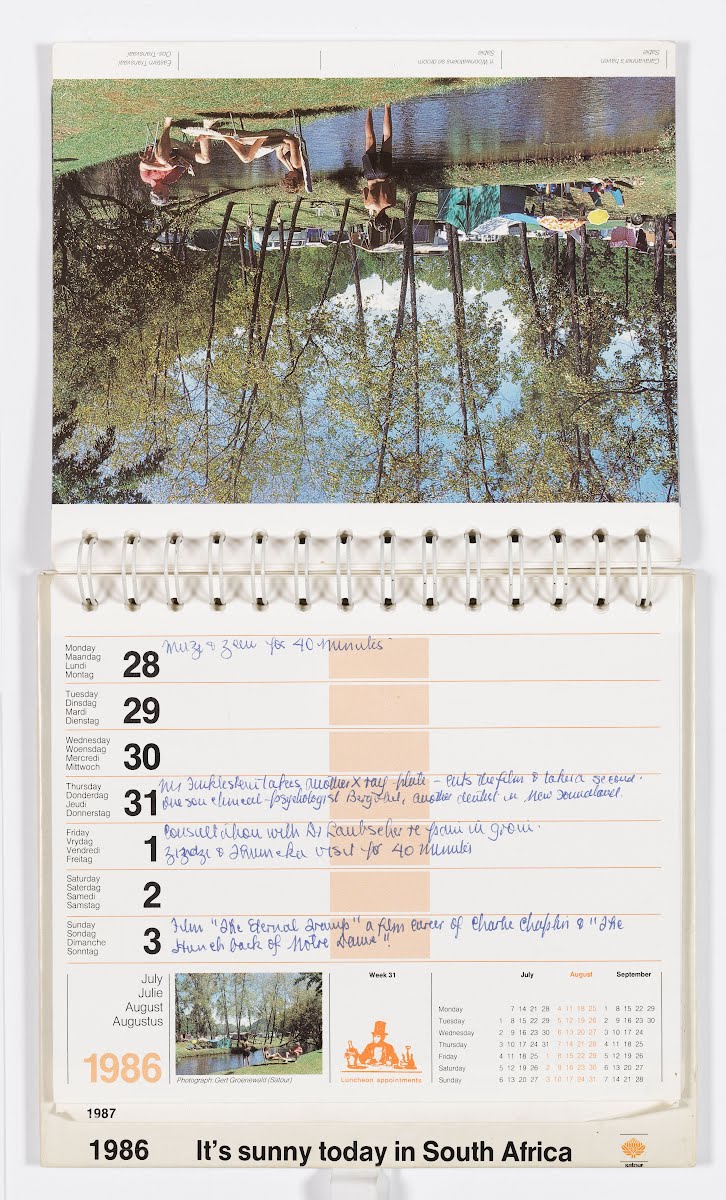 Caravanner's haven
Sabie
'n Woonwaltoeris se droom
Sabie
Eastern Transvaal
Oos-Transvaal
Monday
Maandag
Lundi
Montag
28
& Zeni for 40 minutes
Tuesday
Dinsdag
Mardi
Dienstag
29
Wednesday
Woensdag
Mercredi
Mittwoch
30
Thursday
Donderdag
Jeudi
Donnerstag
31
takes another X ray plate – cuts the film & takes a second.
one son clinical psychologist another dentist in New
Friday
Vrydag
Vendredi
Freitag
1
Consultation with Dr Laubscher re pain in groin.
Zindzi & visit for 40 minutes
Saturday
Saterdag
Samedi
Samstag
2
Sunday
Sondag
Dimanche
Sonntag
3
Film "The Eternal Tramp" a film career of Charlie Chaplin & "The
Hunch back of Notre Dame".
July
Julie
August
Augustus
1986
Photograph: Gert Groenewald (Satour)
Week 31
Luncheon appointments
July August September
Monday 7 14 21 28 4 11 18 25 1 8 15 22 29
Tuesday 1 8 15 22 29 5 12 19 26 2 9 16 23 30
Wednesday 2 9 16 23 30 6 13 20 27 3 10 17 24
Thursday 3 10 17 24 31 7 14 21 28 4 11 18 25
Friday 4 11 18 25 1 8 15 22 29 5 12 19 26
Saturday 5 12 19 26 2 9 16 23 30 6 13 20 27
Sunday 6 13 20 27 3 10 17 24 31 7 14 21 28
1987
1986 It's sunny today in South Africa
satour